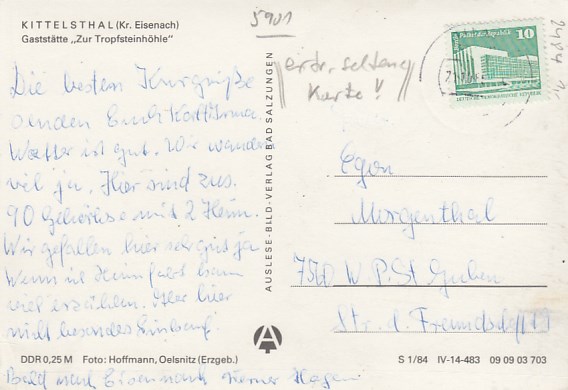 KITTELSTHAL (Kr. Eisenach)
Gaststätte „Zur Tropfsteinhöhle"
5901
Die besten Kurgrüße
senden Euch
Wetter ist gut. Wir wandern
viel ja. Hier sind zus.
90 Gehörlose mit 2 Heim.
Wir gefallen hier sehr gut ja
Wenn ich Heimfahrt kann
viel erzählen. Aber hier
nicht besondes Einkauf.
Bald nach Eisenach Werner Hagen
DDR 0,25 M Foto: Hoffmann, Oelsnitz (Erzgeb.)
AUSLESE-BILD-VERLAG BAD SALZUNGEN
seltene
Karte!
10
2484
Egon
Morgenthal
7560 W. P. St. Guben
Str. d. Freundschaft
S 1/84 IV-14-483 09 09 03 703